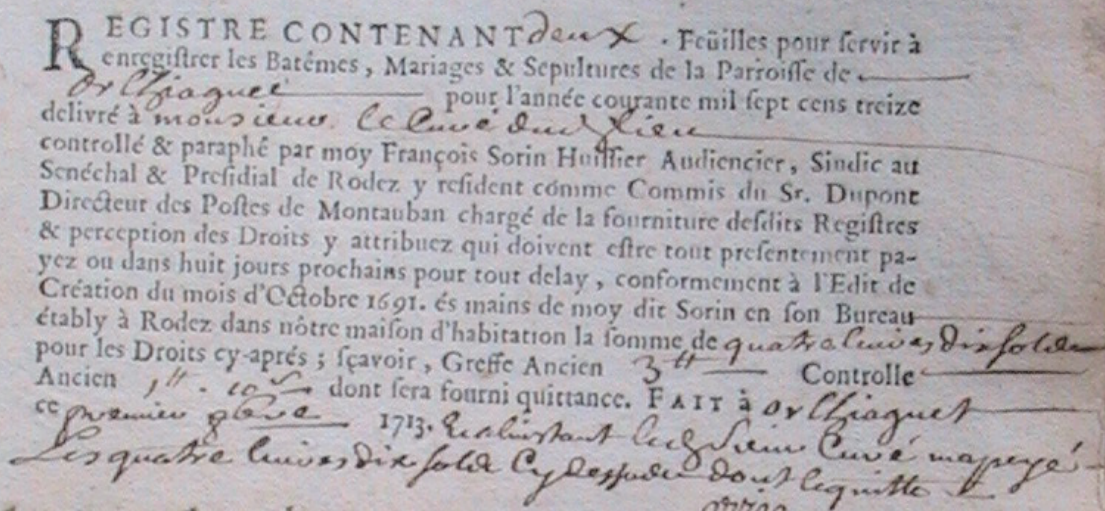 REGISTRE CONTENANT deux. Feüilles pour ſervir à
enregiſtrer les Batêmes, Mariages & Sepultures de la Parroiſſe de
orlhiaguet pour l'année courante mil ſept cens treize
delivré à monsieur le Curé dud lieu
controllé & paraphé par moy François Sorin Huiſſier Audiencier, Sindic au
Senéchal & Preſidial de Rodez y reſident comme Commis du Sr. Dupont
Directeur des Poſtes de Montauban chargé de la fourniture deſdits Regiſtres
& perception des Droits y attribuez qui doivent eſtre tout preſentement pa-
yez ou dans huit jours prochains pour tout delay, conformement à l'Edit de
Création du mois d'Octobre 1691. és mains de moy dit Sorin en ſon Bureau
étably à Rodez dans nôtre maiſon d'habitation la ſomme de quatre livres dix solds
pour les Droits cy-aprés; ſçavoir, Greffe Ancien 3tt Controlle
Ancien 1tt. 10s dont ſera fourni quittance. FAIT à orlhiaguet
ce premier 1713. Et a linstant led Sieur Curé ma payé
Les quatre livres dix solds Cy dessus dont le quitte